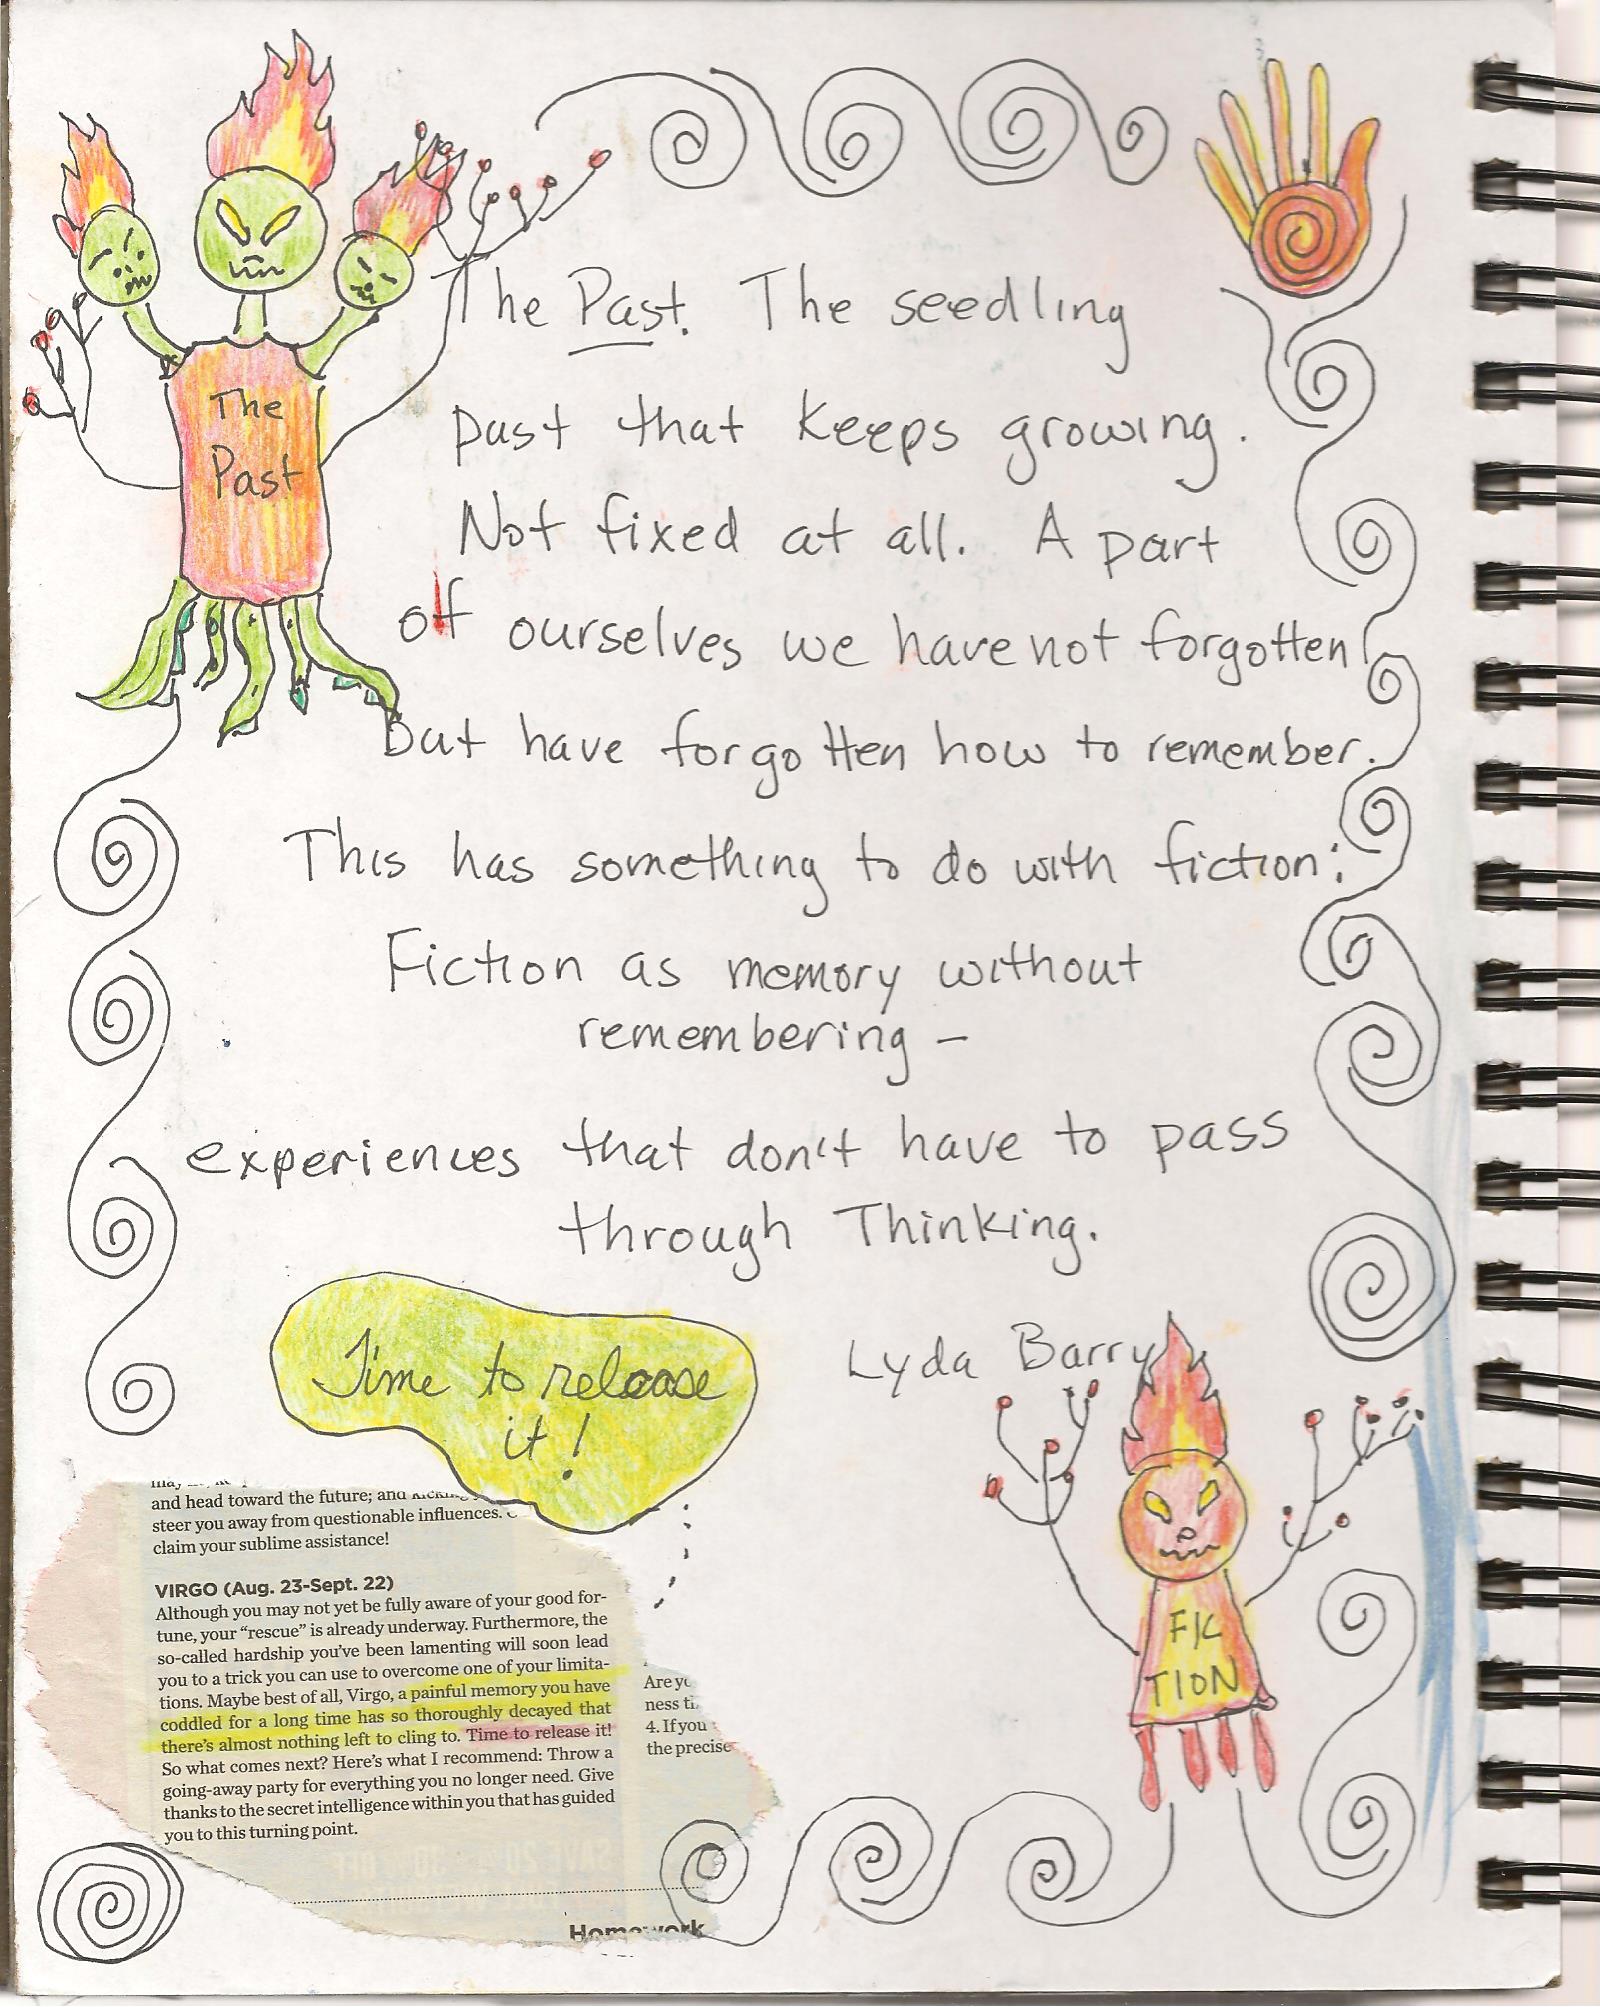 The
Past
The Past. The seedling
past that keeps growing.
Not fixed at all. A part
of ourselves we have not forgotten
but have forgotten how to remember.
This has something to do with fiction:
Fiction as memory without
remembering -
experiences that don't have to pass
through Thinking.
Lyda Barry
Time to release
it!
FIC
TION
and head toward the future; and
steer you away from questionable influences.
claim your sublime assistance!
VIRGO (Aug. 23-Sept. 22)
Although you may not yet be fully aware of your good for-
tune, your “rescue” is already underway. Furthermore, the
so-called hardship you’ve been lamenting will soon lead
you to a trick you can use to overcome one of your limita-
tions. Maybe best of all, Virgo, a painful memory you have
coddled for a long time has so thoroughly decayed that
there’s almost nothing left to cling to. Time to release it!
So what comes next? Here’s what I recommend: Throw a
going-away party for everything you no longer need. Give
thanks to the secret intelligence within you that has guided
you to this turning point.
Are
ness
4. If you
the precise
Homework